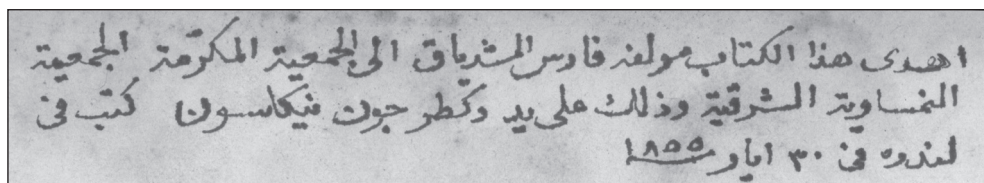 اهدى هذا الكتاب مولفه فارس الشدياق الى الجمعية المكرّمة الجمعية
النمساوية الشرقية وذلك على يد دكطر جون نيكلسون كتب فى
لندره فى ٣٠ ايار ١٨٥٥